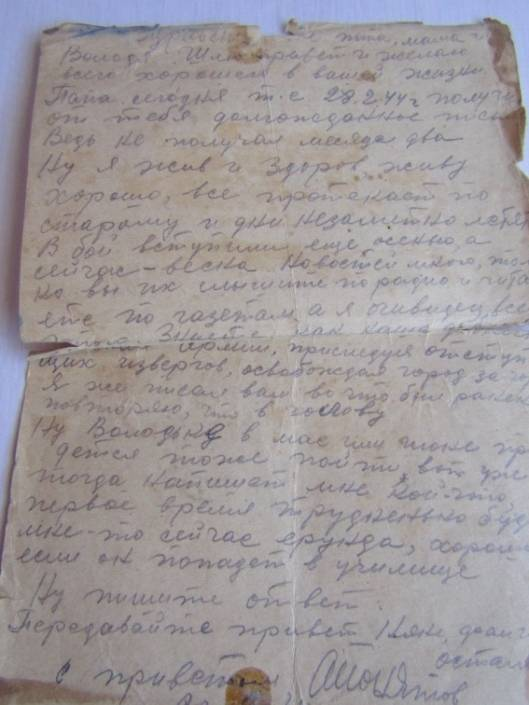 папа, мама и
Володя. Шлю привет и желаю
всего хорошего в вашей жизни
Папа сегодня т-е 28.2.44 г получил
от тебя долгожданное письмо
Ведь не получал месяца два
Ну я жив и здоров живу
хорошо, все протекает по
старому и дни незаметно летят
В бой вступили еще осенью, а
сейчас - весна Новостей много, толь
ко вы их слышите по радио и чита
ете по газетам, а я очевидец всего
Знаете как наша
армии, преследуя отступ
щих извергов, освобождая город за
Я же писал вам во что был ранен
повторяю, что в голову
Ну Володьке в мае или июне при
дется тоже пойти вот уже
тогда напишет мне кой-что
первое время трудненько буд
мне-то сейчас ерунда, хорошо
если он попадет в училище
Ну пишите ответ.
Передавайте привет
остальн
С приветом